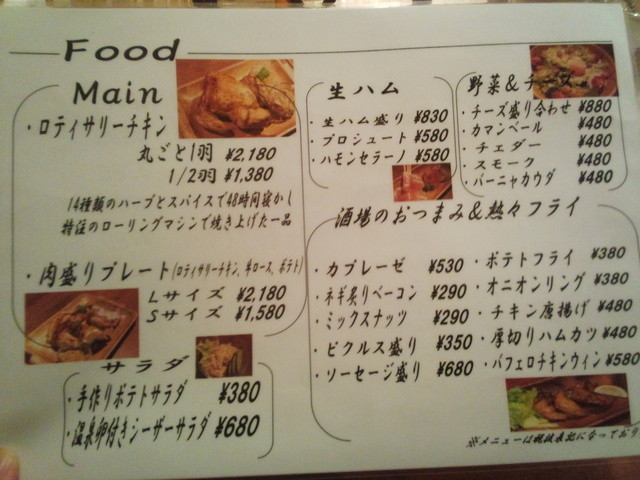 Food
Main
・ロティサリーチキン
丸ごと1羽 ¥2,180
1/2羽 ¥1,380
14種類のハーブとスパイスで48時間寝かし
特注のローリングマシンで焼き上げた一品
・肉盛りプレート(ロティサリーチキン、牛ロース、ポテト)
Lサイズ ¥2,180
Sサイズ ¥1,580
サラダ
・手作りポテトサラダ ¥380
・温泉卵付きシーザーサラダ ¥680
生ハム
・生ハム盛り ¥830
・プロシュート ¥580
・ハモンセラーノ ¥580
野菜&チーズ
・チーズ盛り合わせ ¥880
・カマンベール ¥480
・チェダー ¥480
・スモーク ¥480
・バーニャカウダ ¥480
酒場のおつまみ&熱々フライ
・カプレーゼ ¥530
・ネギ炙りベーコン ¥290
・ミックスナッツ ¥290
・ピクルス盛り ¥350
・ソーセージ盛り ¥680
・ポテトフライ ¥380
・オニオンリング ¥380
・チキン唐揚げ ¥480
・厚切りハムカツ ¥480
・バフェロチキンウィン ¥580
※メニューは税抜表記になっており